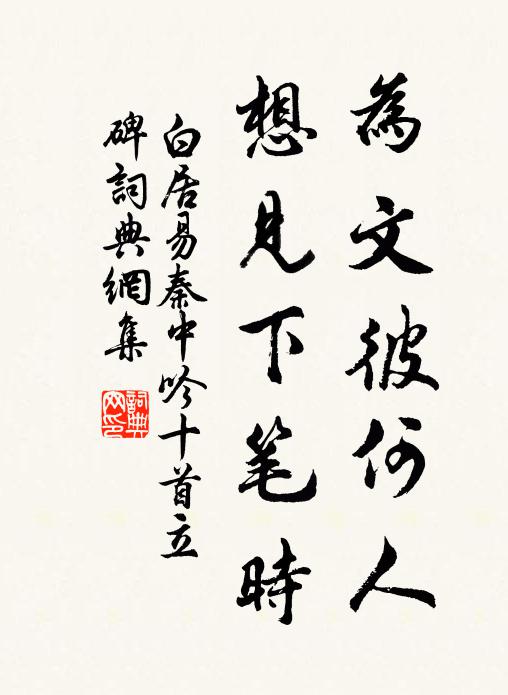 為文彼何人
想見下笔時
白居易秦中吟十首立
碑詞典網集
詞典
网印